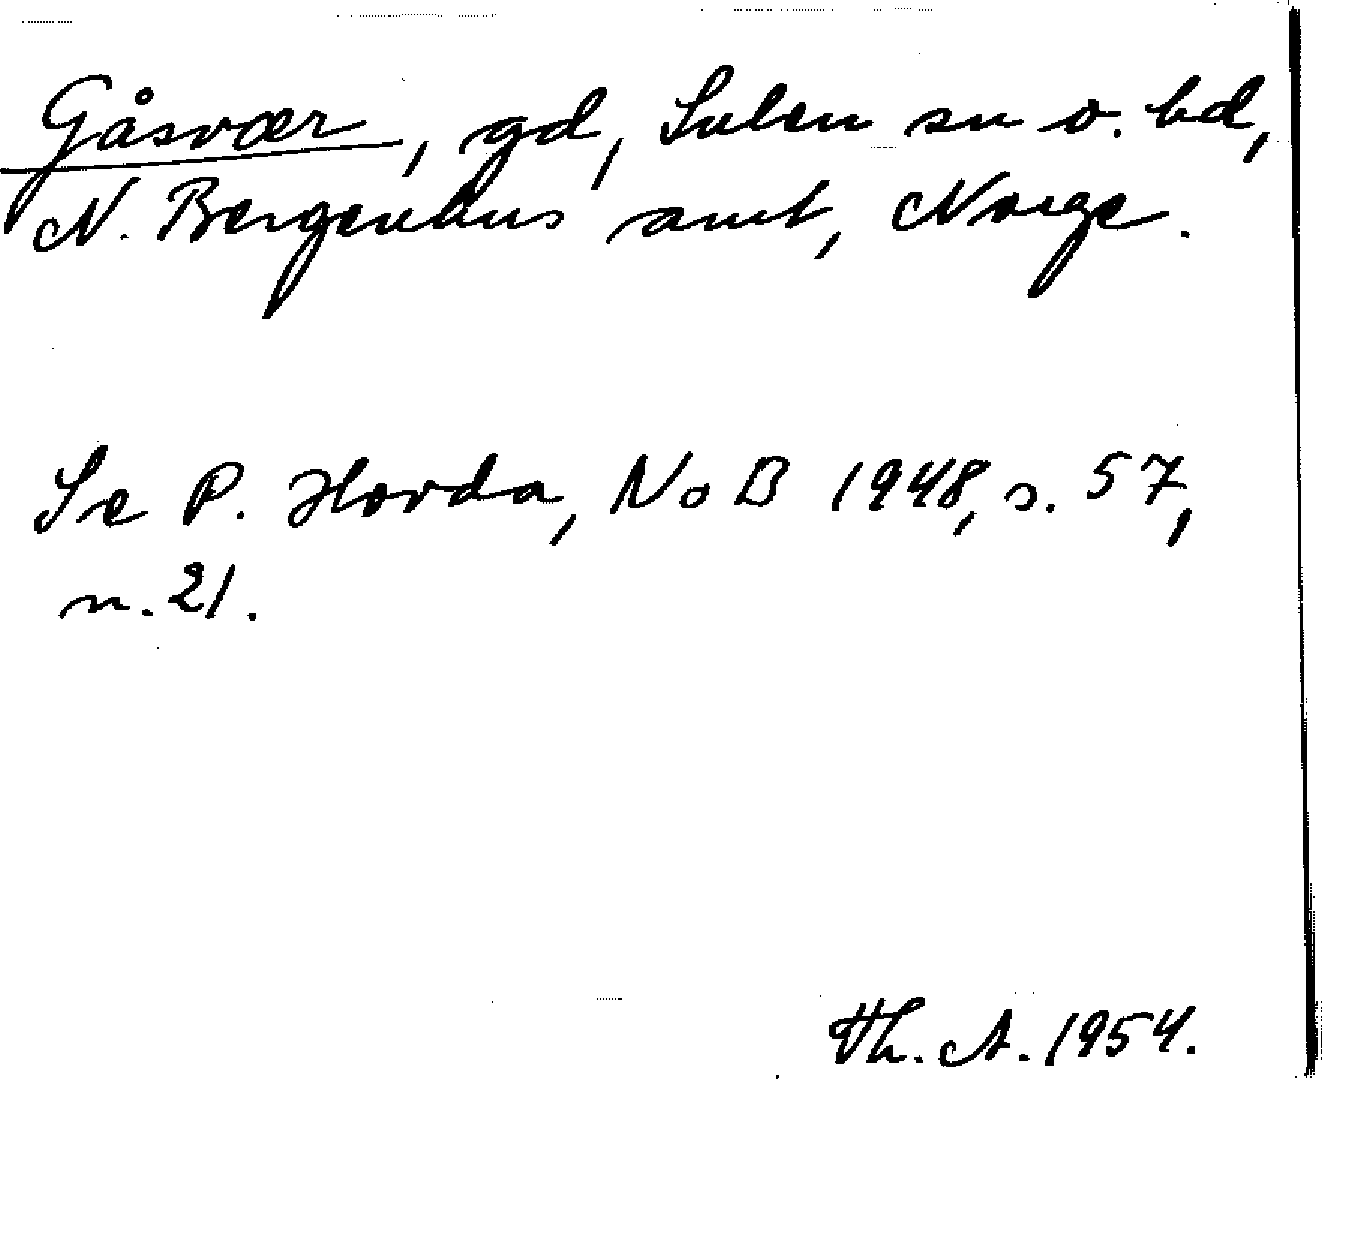 Gåsvær, gd, Sulen sn o. hd,
N. Bergenhus amt, Norge.
Se P. Hovda, NoB 1948, s. 57,
n. 21.
Th. A. 1954.